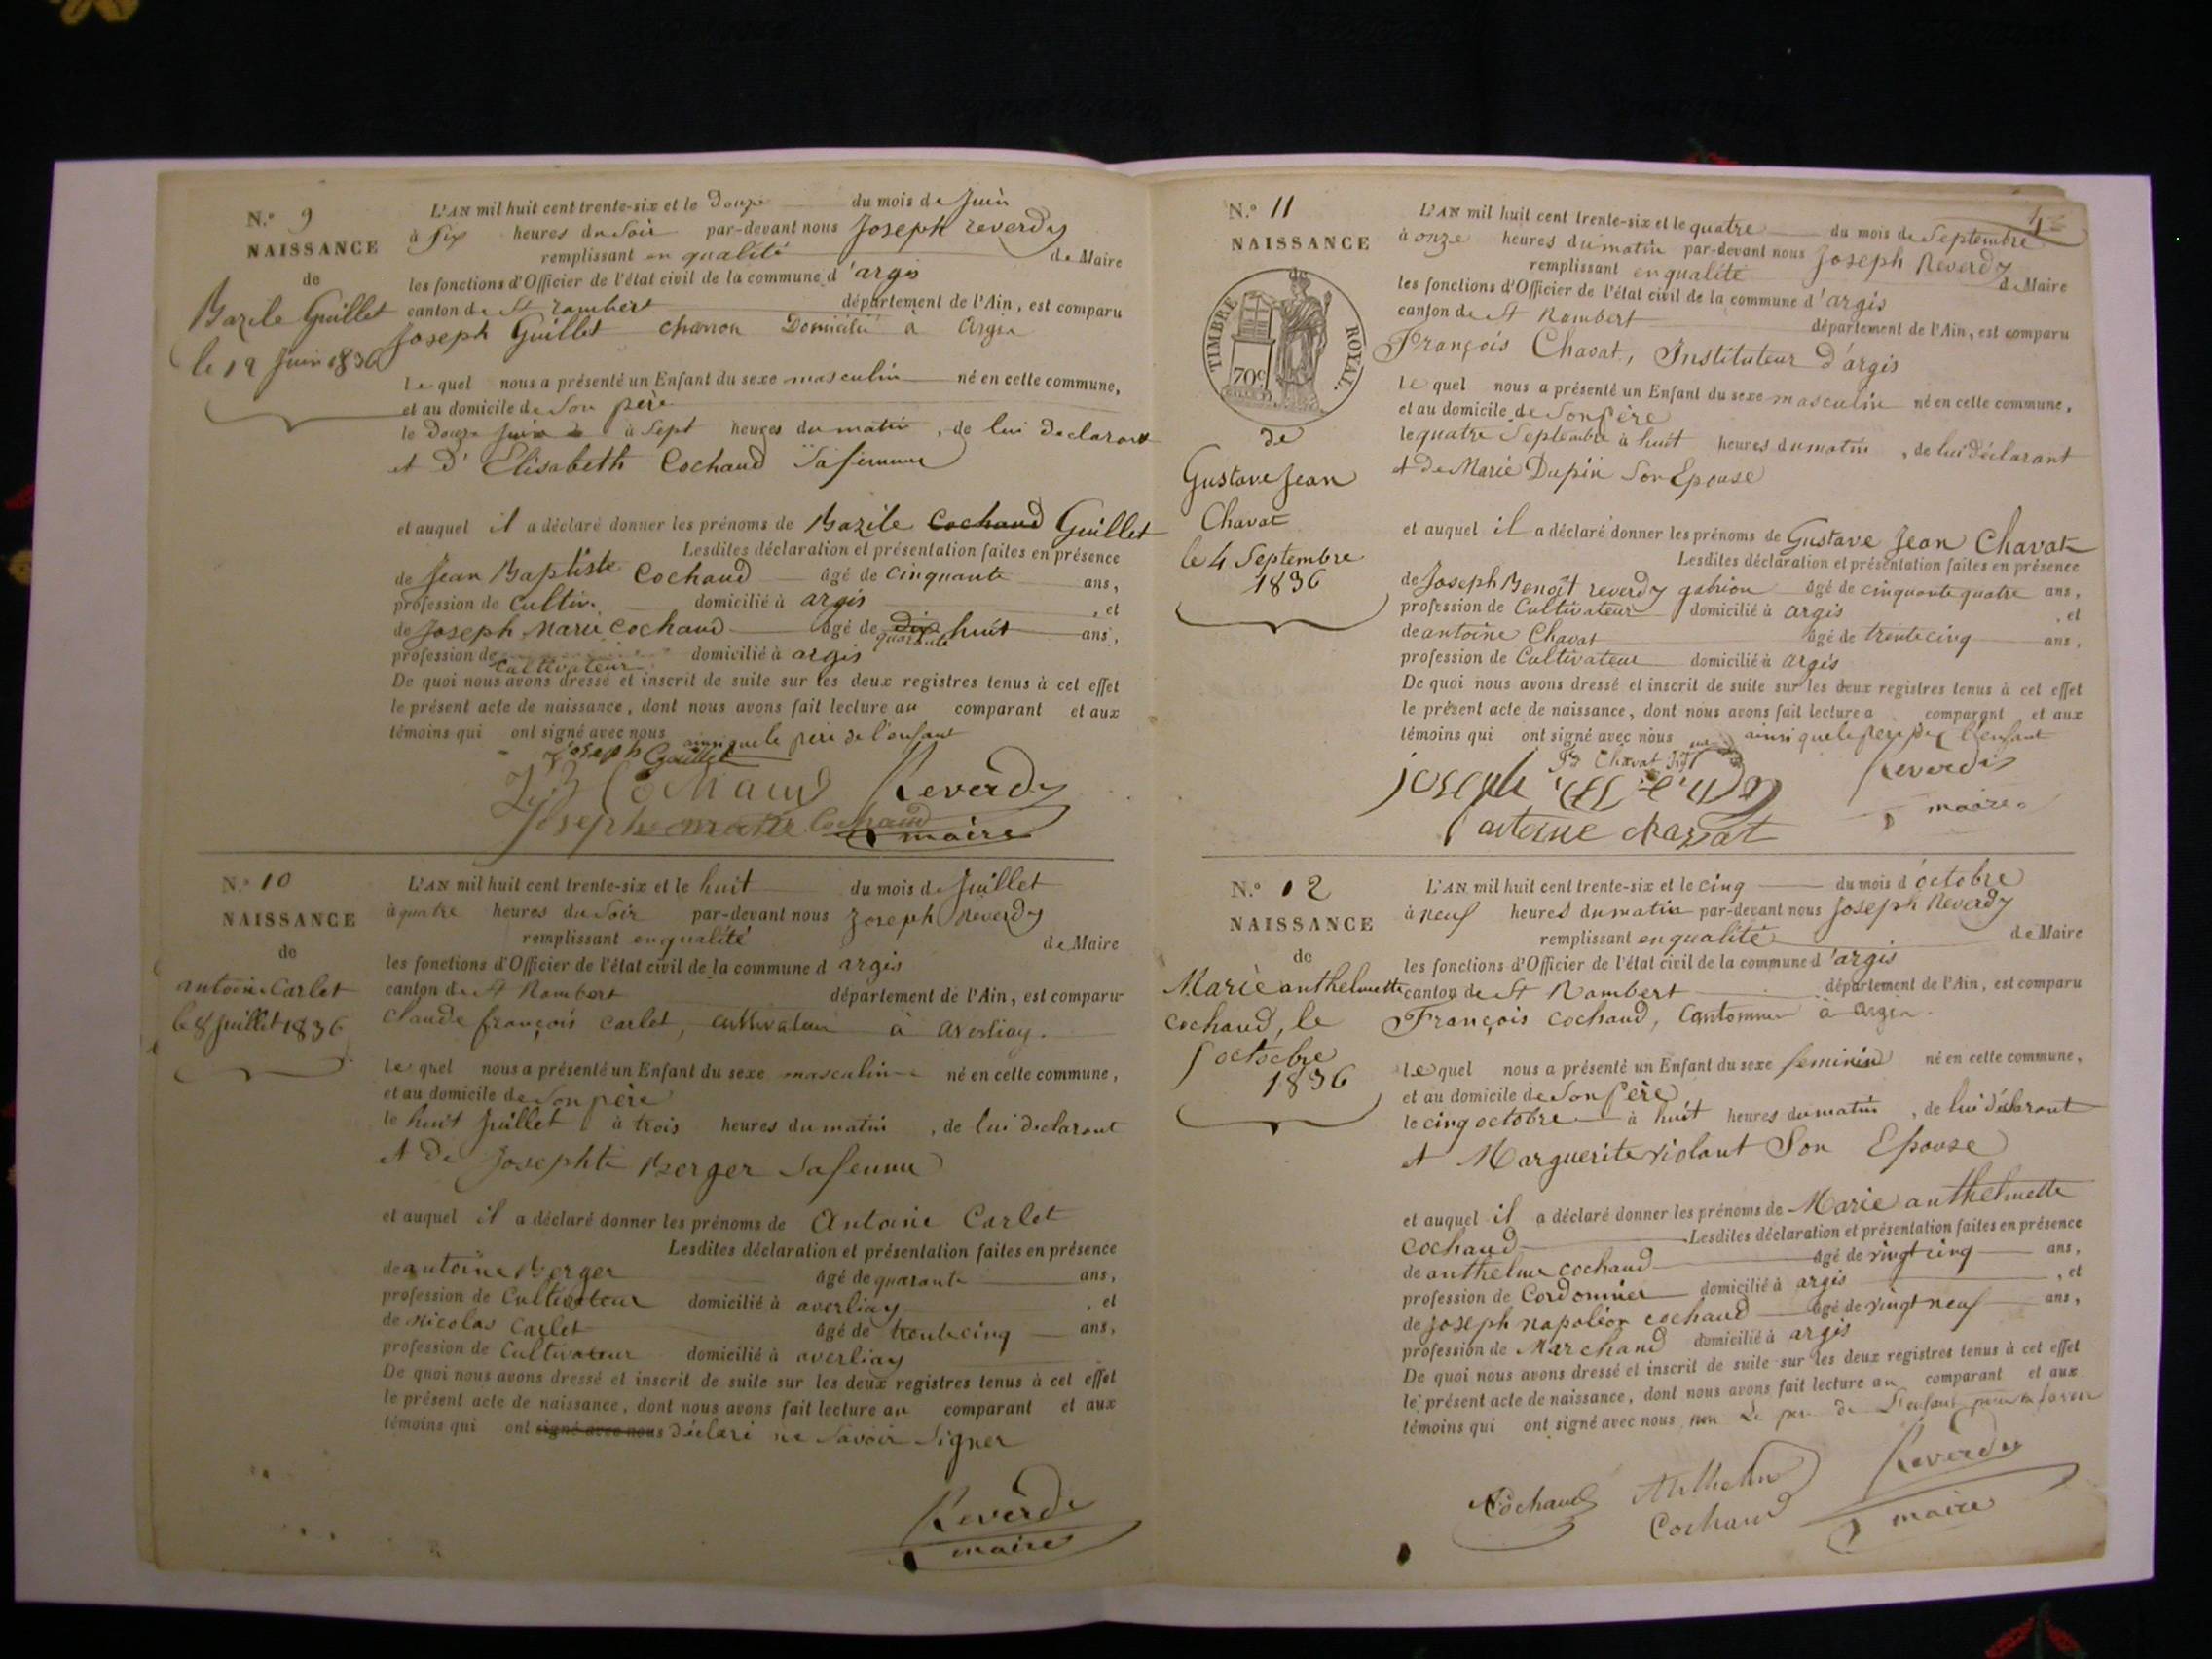 N.o 9
NAISSANCE
de
Bazile Guillet
le 12 Juin 1836
L'AN mil huit cent trente-six et le Douze du mois de Juin
à Six heures du Soir par-devant nous Joseph reverdy
remplissant en qualité de Maire
les fonctions d'Officier de l'état civil de la commune d'argis
canton de St rambert département de l'Ain, est comparu
Joseph Guillet charron Domicilié à Argis
Lequel nous a présenté un Enfant du sexe masculin né en cette commune,
et au domicile de Son père
le Douze Juin à Sept heures du matin, de lui declarant
et d'Elisabeth Cochaud Sa femme
et auquel il a déclaré donner les prénoms de Bazile Cochaud Guillet
Lesdites déclaration et présentation faites en présence
de Jean Baptiste Cochaud âgé de cinquante ans,
profession de Cultiv. domicilié à argis, et
de Joseph Marie Cochaud âgé de dix huit ans,
quarante
profession de Cultivateur domicilié à argis
De quoi nous avons dressé et inscrit de suite sur les deux registres tenus à cet effet
le présent acte de naissance, dont nous avons fait lecture au comparant et aux
témoins qui ont signé avec nous ainsi que le père de l'enfant
Joseph Guillet
J B Cochaud Reverdy
Joseph marie Cochaud maire
N.o 10
NAISSANCE
de
antoine Carlet
le 8 Juillet 1836
L'AN mil huit cent trente-six et le huit du mois de Juillet
à quatre heures du Soir par-devant nous Joseph Reverdy
remplissant en qualité de Maire
les fonctions d'Officier de l'état civil de la commune d argis
canton de St Rambert département de l'Ain, est comparu
Claude françois Carlet, cultivateur à averliay.
Lequel nous a présenté un Enfant du sexe masculin né en cette commune,
et au domicile de Son père
le huit Juillet à trois heures du matin, de lui declarant
et de Josephte Berger Sa femme
et auquel il a déclaré donner les prénoms de Antoine Carlet
Lesdites déclaration et présentation faites en présence
de antoine Berger âgé de quarante ans,
profession de Cultivateur domicilié à averliay, et
de Nicolas Carlet âgé de trente cinq ans,
profession de Cultivateur domicilié à averliay
De quoi nous avons dressé et inscrit de suite sur les deux registres tenus à cet effet
le présent acte de naissance, dont nous avons fait lecture au comparant et aux
témoins qui ont signé avec nous déclaré ne Savoir Signer
Reverdy
maire
N.o 11
NAISSANCE
TIMBRE ROYAL.
70c
de
Gustave Jean
Chavat
le 4 Septembre
1836
L'AN mil huit cent trente-six et le quatre du mois de Septembre
à onze heures du matin par-devant nous Joseph Reverdy
remplissant en qualité de Maire
les fonctions d'Officier de l'état civil de la commune d'argis
canton de St Rambert département de l'Ain, est comparu
François Chavat, Instituteur d'argis
Lequel nous a présenté un Enfant du sexe masculin né en cette commune,
et au domicile de Son Père
le quatre Septembre à huit heures du matin, de lui déclarant
et de Marie Dupin Son Epouse
et auquel il a déclaré donner les prénoms de Gustave Jean Chavat
Lesdites déclaration et présentation faites en présence
de Joseph Benoît reverdy gabrion âgé de cinquante quatre ans,
profession de Cultivateur domicilié à argis, et
de antoine Chavat âgé de trente cinq ans,
profession de Cultivateur domicilié à argis
De quoi nous avons dressé et inscrit de suite sur les deux registres tenus à cet effet
le présent acte de naissance, dont nous avons fait lecture a comparant et aux
témoins qui ont signé avec nous ainsi que le père de l'enfant
Chavat
joseph Reverdy
antoine chavat maire
N.o 12
NAISSANCE
de
Marie anthelmette
cochaud, le
5 octobre
1836
L'AN mil huit cent trente-six et le cinq du mois d'octobre
à neuf heures du matin par-devant nous Joseph Reverdy
remplissant en qualité de Maire
les fonctions d'Officier de l'état civil de la commune d'argis
canton de St Rambert département de l'Ain, est comparu
François cochaud, Cantonnier à argis.
Lequel nous a présenté un Enfant du sexe feminin né en cette commune,
et au domicile de Son Père
le cinq octobre à huit heures du matin, de lui déclarant
et Marguerite violant Son Epouse
et auquel il a déclaré donner les prénoms de Marie anthelmette
Cochaud Lesdites déclaration et présentation faites en présence
de anthelme cochaud âgé de vingt cinq ans,
profession de Cordonnier domicilié à argis, et
de Joseph napoléon cochaud âgé de vingt neuf ans,
profession de Marchand domicilié à argis
De quoi nous avons dressé et inscrit de suite sur les deux registres tenus à cet effet
le présent acte de naissance, dont nous avons fait lecture au comparant et aux
témoins qui ont signé avec nous non Le père de L'enfant pour ne savoir
Cochaud Anthelme Reverdy
Cochaud maire